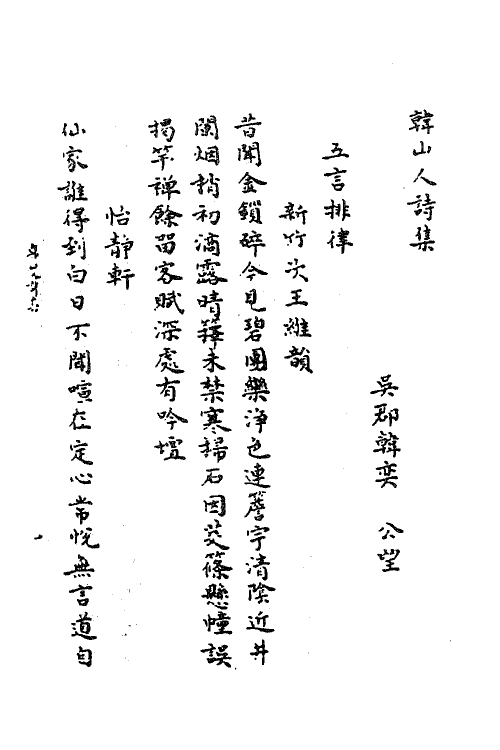 韓山人詩集
吳郡韓奕 公望
五言排律
新竹次王維韻
昔聞金鎖碎今見碧團欒淨色連簷宇清陰近井
闌烟梢初滴露晴籜未禁寒掃石因芟篠懸幢誤
揭竿禅餘留客賦深處有吟壇
怡靜軒
仙家誰得到白日不聞喧在定心常悅無言道自